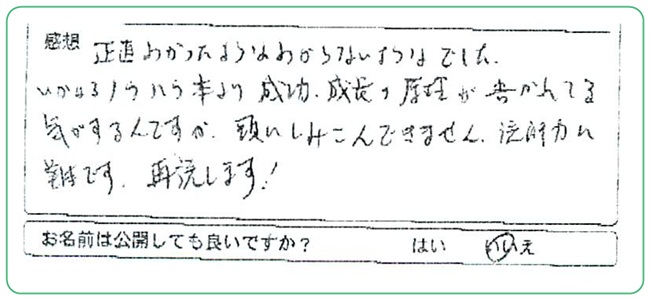 感想 正直わかったようなわからないようなでした。
いわゆるノウハウ本より成功、成長の原理が書かれてる
気がするんですが、頭にしみこんできません。読解力に
難です。再読します!
お名前は公開しても良いですか? はい いいえ